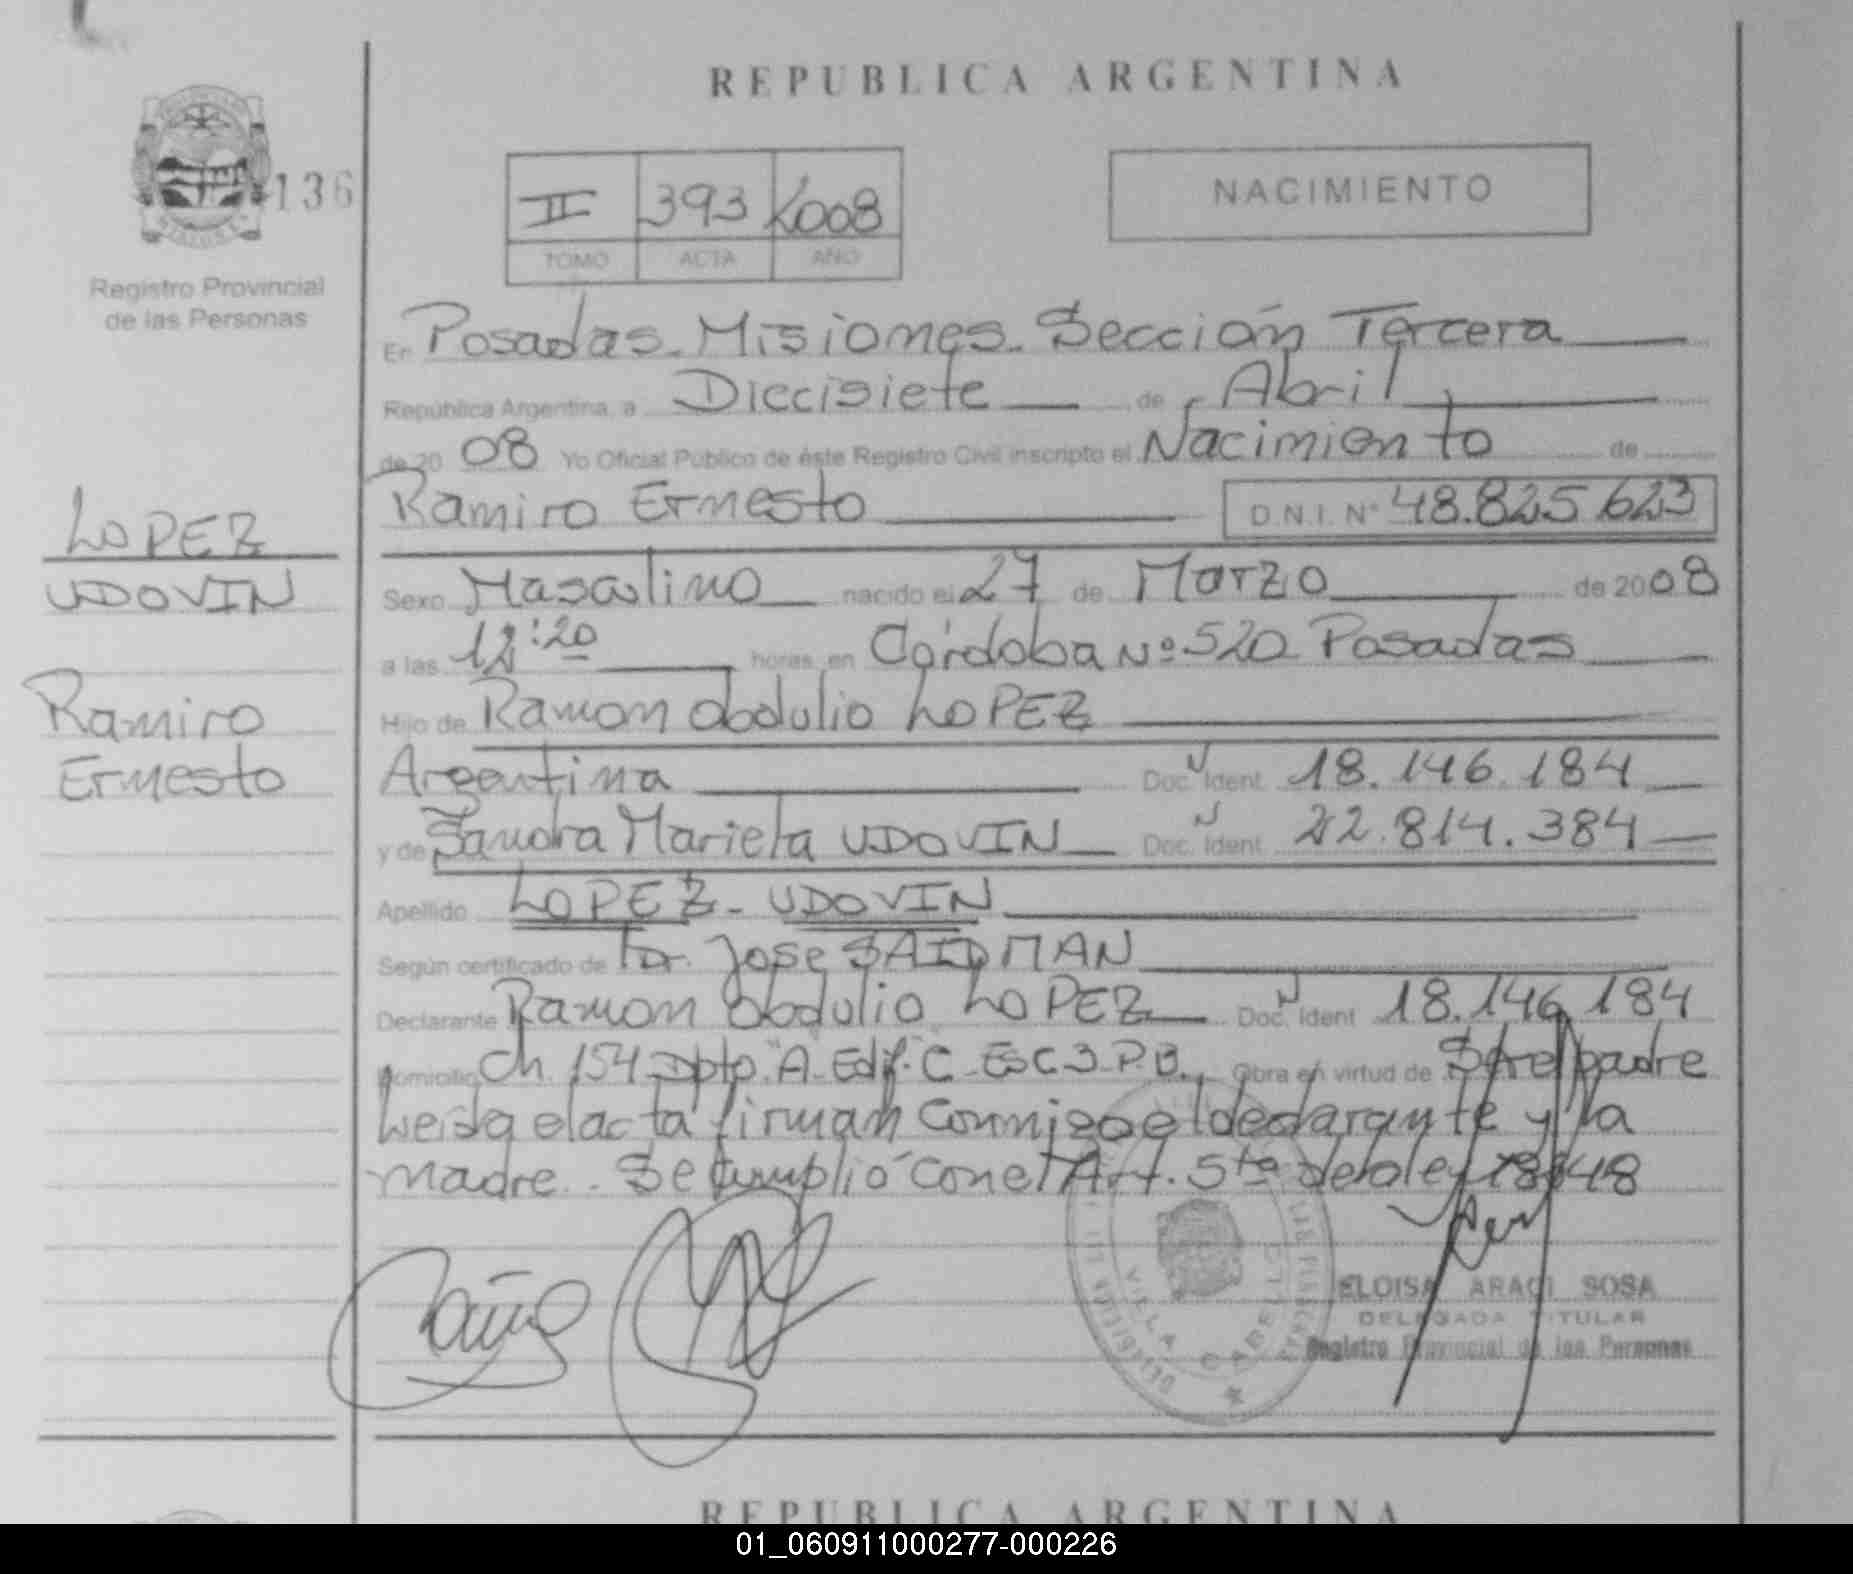 REPUBLICA ARGENTINA
136
II 393 2008
TOMO ACTA AÑO
NACIMIENTO
Registro Provincial
de las Personas
En Posadas - Misiones - Sección Tercera
República Argentina, a Diecisiete de Abril
de 20 08 Yo Oficial Público de éste Registro Civil inscripto el Nacimiento de
Ramiro Ernesto D.N.I. Nº 48.825.623
LOPEZ
UDOVIN
Ramiro
Ernesto
Sexo Masculino nacido el 27 de Marzo de 2008
a las 12:20 horas, en Córdoba Nº 520 Posadas
Hijo de Ramon Obdulio LOPEZ
Argentina Doc. Ident. 18.146.184
y de Sandra Mariela UDOVIN Doc. Ident. 22.814.384
Apellido LOPEZ - UDOVIN
Según certificado de Dr. Jose SAIDMAN
Declarante Ramon Obdulio LOPEZ Doc. Ident. 18.146.184
Domicilio Ch. 154 Dpto. "A" Edif. "C" Esc 3 P.B. Obra en virtud de Ser el padre
Leida el acta firman conmigo el declarante y la
madre. Se cumplió con el Art. 5ta de la ley 18248
VILLA CABELLO
ELOISA ARACI SOSA
DELEGADA TITULAR
Registro Provincial de las Personas
REPUBLICA ARGENTINA
01_060911000277-000226